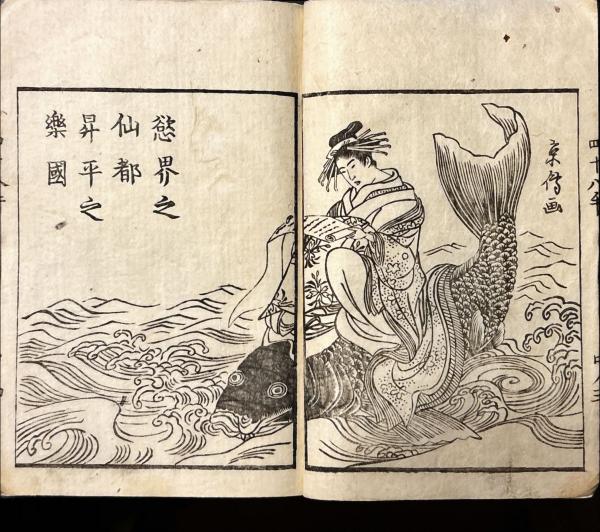 京傳画
慾界之
仙都
昇平之
樂國
四十八手